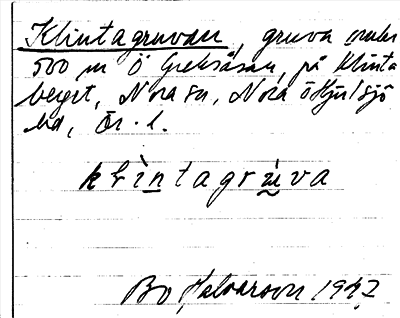 Klintagruvan, gruva
500 m Ö Greksåsen, på Klinta
berget, Nora sn, Nora o Hjulsjö
bd, Ör. l.
klìntagrùva
Bo Halvarson 1942